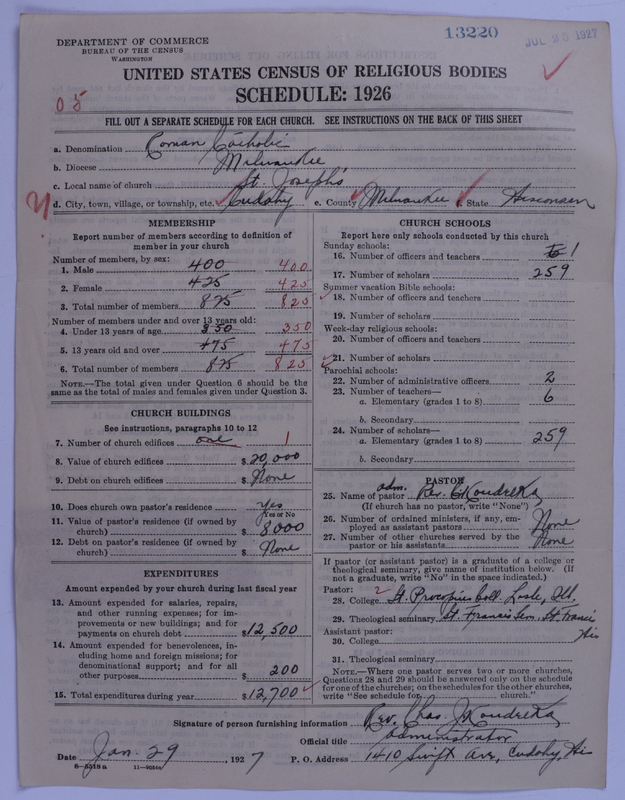 13220
JUL 25 1927
DEPARTMENT OF COMMERCE
BUREAU OF THE CENSUS
WASHINGTON
UNITED STATES CENSUS OF RELIGIOUS BODIES
SCHEDULE: 1926
05
FILL OUT A SEPARATE SCHEDULE FOR EACH CHURCH. SEE INSTRUCTIONS ON THE BACK OF THIS SHEET
a. Denomination Roman Catholic
b. Diocese Milwaukee
c. Local name of church St. Joseph's
d. City, town, village, or township, etc. Cudahy e. County Milwaukee f. State Wisconsin
MEMBERSHIP
Report number of members according to definition of
member in your church
Number of members, by sex:
1. Male 400 400
2. Female 425 425
3. Total number of members 825 825
Number of members under and over 13 years old:
4. Under 13 years of age 350 350
5. 13 years old and over 475 475
6. Total number of members 825 825
NOTE.—The total given under Question 6 should be
the same as the total of males and females given under Question 3.
CHURCH BUILDINGS
See instructions, paragraphs 10 to 12
7. Number of church edifices one 1
8. Value of church edifices $ 20,000
9. Debt on church edifices $ None
10. Does church own pastor's residence Yes
Yes or No
11. Value of pastor's residence (if owned by
church) $ 8000
12. Debt on pastor's residence (if owned by
church) $ None
EXPENDITURES
Amount expended by your church during last fiscal year
13. Amount expended for salaries, repairs,
and other running expenses; for im-
provements or new buildings; and for
payments on church debt $ 12,500
14. Amount expended for benevolences, in-
cluding home and foreign missions; for
denominational support; and for all
other purposes $ 200
15. Total expenditures during year $ 12,700
CHURCH SCHOOLS
Report here only schools conducted by this church
Sunday schools:
16. Number of officers and teachers 1
17. Number of scholars 259
Summer vacation Bible schools:
18. Number of officers and teachers
19. Number of scholars
Week-day religious schools:
20. Number of officers and teachers
21. Number of scholars
Parochial schools:
22. Number of administrative officers 2
23. Number of teachers—
a. Elementary (grades 1 to 8) 6
b. Secondary
24. Number of scholars—
a. Elementary (grades 1 to 8) 259
b. Secondary
PASTOR
adm.
25. Name of pastor Rev. C Koudretka
(If church has no pastor, write "None")
26. Number of ordained ministers, if any, em-
ployed as assistant pastors None
27. Number of other churches served by the
pastor or his assistants None
If pastor (or assistant pastor) is a graduate of a college or
theological seminary, give name of institution below. (If
not a graduate, write "No" in the space indicated.)
Pastor: 2
28. College St. Procopius Coll. Lisle, Ill.
29. Theological seminary St. Francis Sem. St. Francis
Wis
Assistant pastor:
30. College
31. Theological seminary
NOTE.—Where one pastor serves two or more churches,
Questions 28 and 29 should be answered only on the schedule
for one of the churches; on the schedules for the other churches,
write "See schedule for church."
Signature of person furnishing information Rev. Chas. J Koudretka
Official title administrator
Date Jan. 29, 1927 P. O. Address 1410 Swift Ave, Cudahy, Wis
8—5518a 11—9036a